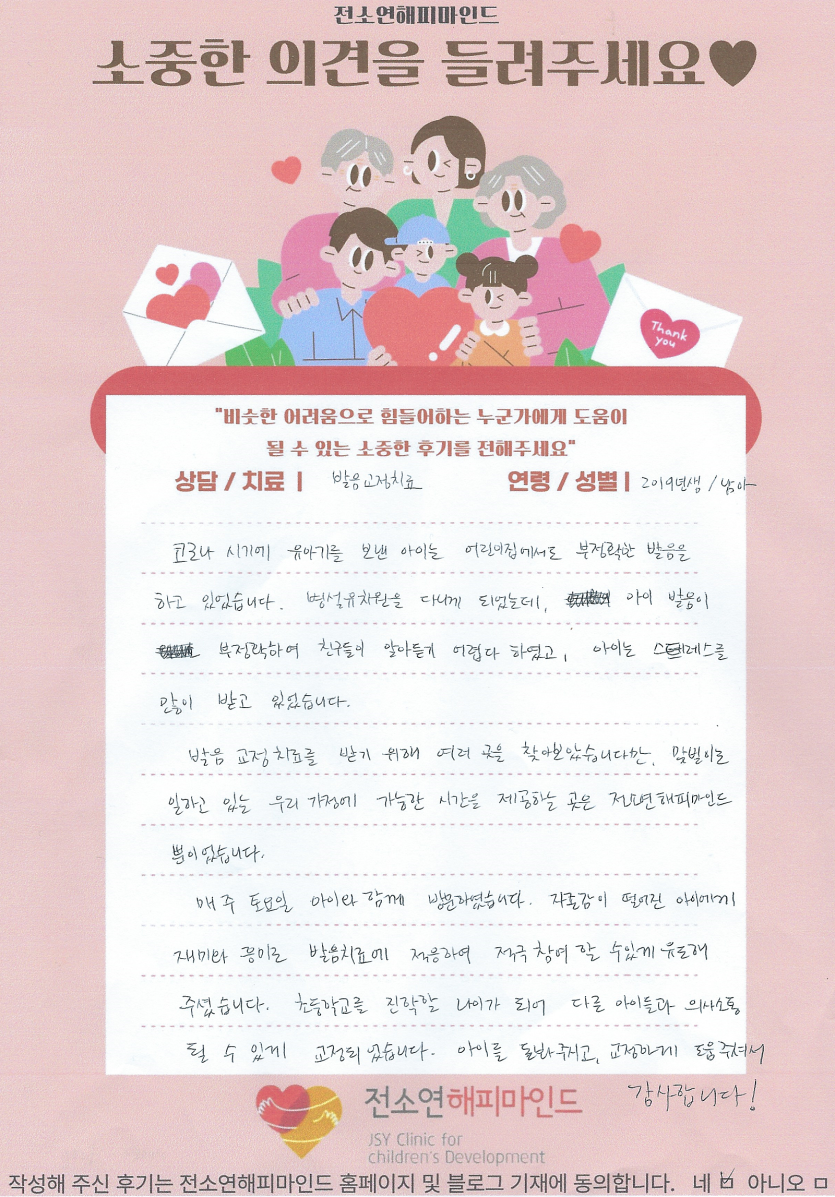 전소연해피마인드
소중한 의견을 들려주세요♥
Thank
you
"비슷한 어려움으로 힘들어하는 누군가에게 도움이
될 수 있는 소중한 후기를 전해주세요"
상담 / 치료 | 발음교정치료 연령 / 성별 | 2019년생 / 남아
코로나 시기에 유아기를 보낸 아이는 어린이집에서도 부정확한 발음을
하고 있었습니다. 병설유치원을 다니게 되었는데, 아이 발음이
부정확하여 친구들이 알아듣기 어렵다 하였고, 아이는 스트레스를
많이 받고 있었습니다.
발음 교정치료를 받기 위해 여러 곳을 찾아보았습니다만, 맞벌이로
일하고 있는 우리 가정에 가능한 시간을 제공하는 곳은 전소연해피마인드
뿐이었습니다.
매주 토요일 아이와 함께 방문하였습니다. 자존감이 떨어진 아이에게
재미와 흥미로 발음치료에 적응하여 적극 참여 할 수있게 유도해
주셨습니다. 초등학교를 진학할 나이가 되어 다른 아이들과 의사소통
될 수 있게 교정되었습니다. 아이를 돌봐주시고, 교정하게 도움주셔서
감사합니다!
전소연해피마인드
JSY Clinic for
children's Development
작성해 주신 후기는 전소연해피마인드 홈페이지 및 블로그 기재에 동의합니다. 네 ☑ 아니오 ㅁ